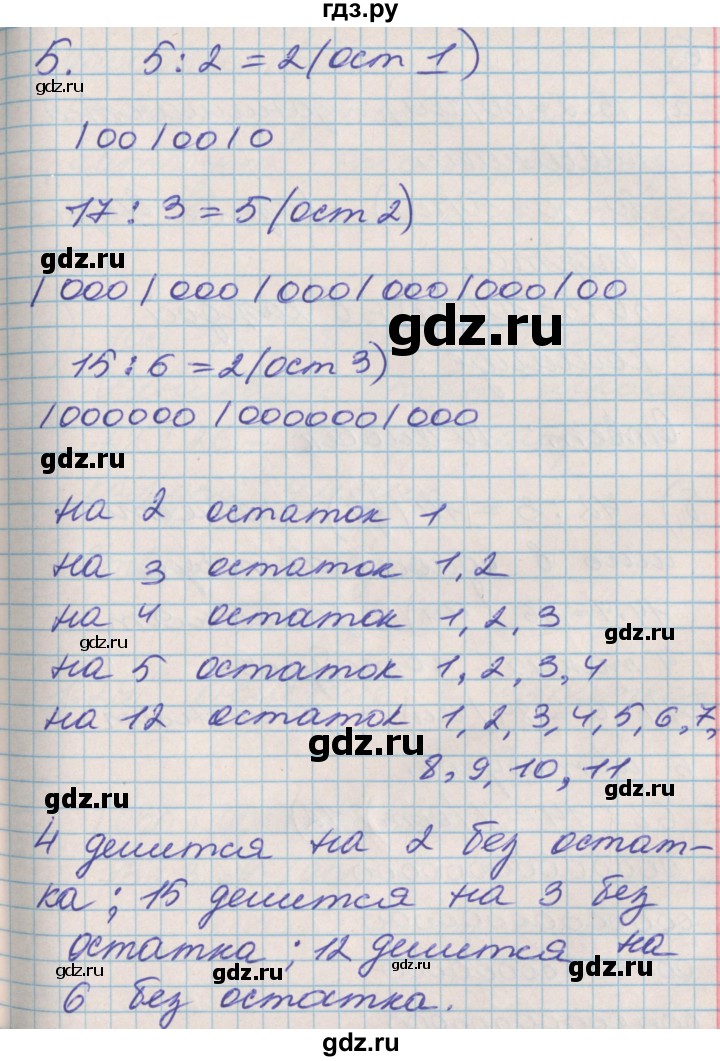 гдз.ру
5. 5 : 2 = 2 (ост 1)
gdz.ru
/00/00/0
17 : 3 = 5 (ост 2)
gdz.ru
/000/000/000/000/000/00
gdz.ru
15 : 6 = 2 (ост 3)
/000000/000000/000
gdz.ru
на 2 остаток 1
на 3 остаток 1, 2
на 4 остаток 1, 2, 3
gdz.ru gdz.ru
на 5 остаток 1, 2, 3, 4
на 12 остаток 1, 2, 3, 4, 5, 6, 7,
gdz.ru
8, 9, 10, 11
gdz.ru gdz.ru
4 делится на 2 без остат-
ка; 15 делится на 3 без
остатка; 12 делится на
gdz.ru gdz.ru gdz.ru gdz.ru
6 без остатка.
gdz.ru